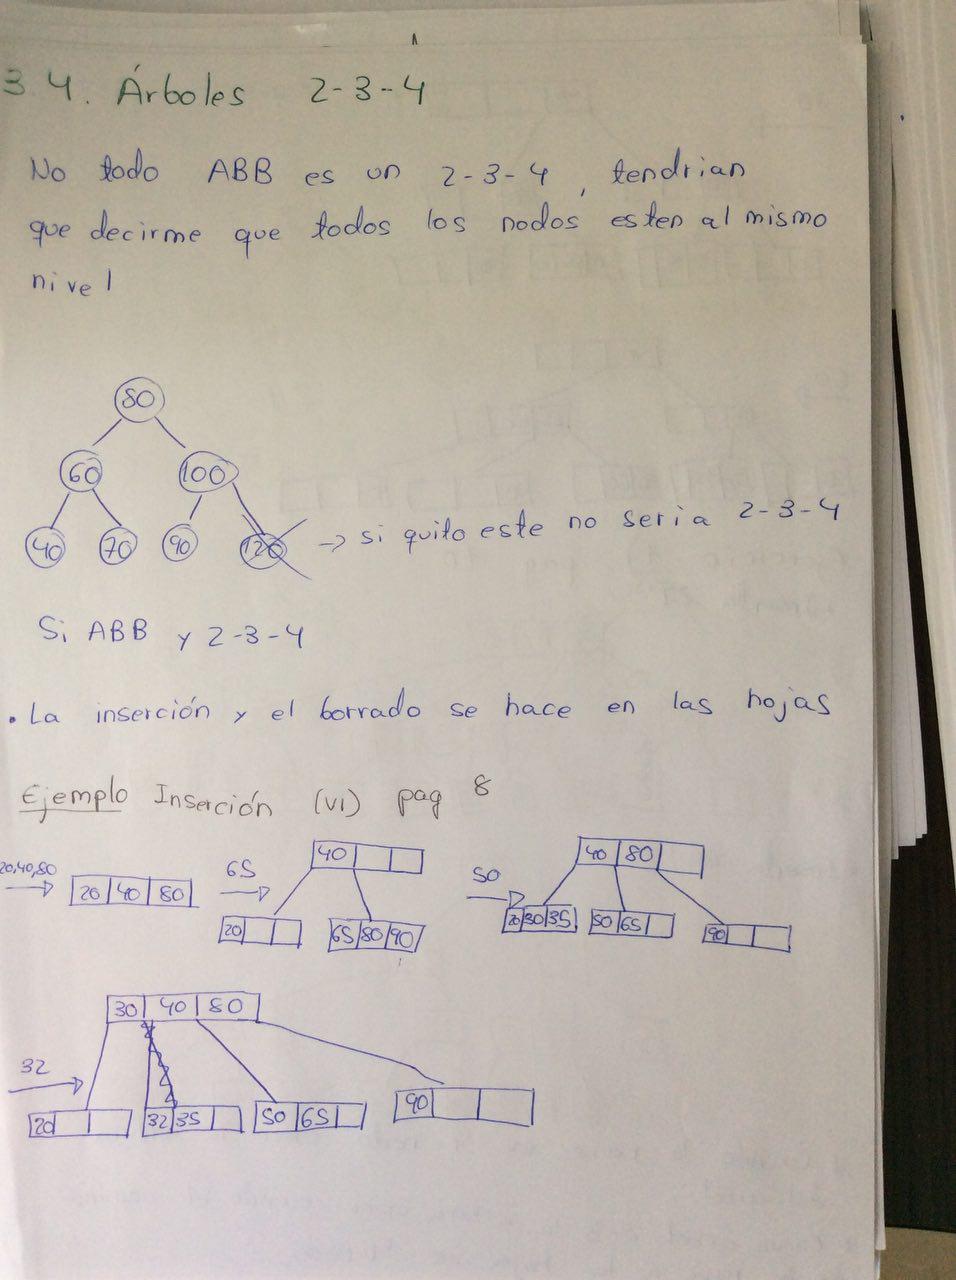 3 4. Árboles 2-3-4
No todo ABB es un 2-3-4, tendrian
que decirme que todos los nodos esten al mismo
nivel
80
60 100
40 70 90 120 → si quito este no seria 2-3-4
Si ABB y 2-3-4
• La inserción y el borrado se hace en las hojas
Ejemplo Inserción (VI) pag 8
20,40,80
20 40 80
65
40
20 65 80 90
50
40 80
20 30 35 50 65 90
32
30 40 80
20 32 35 50 65 90